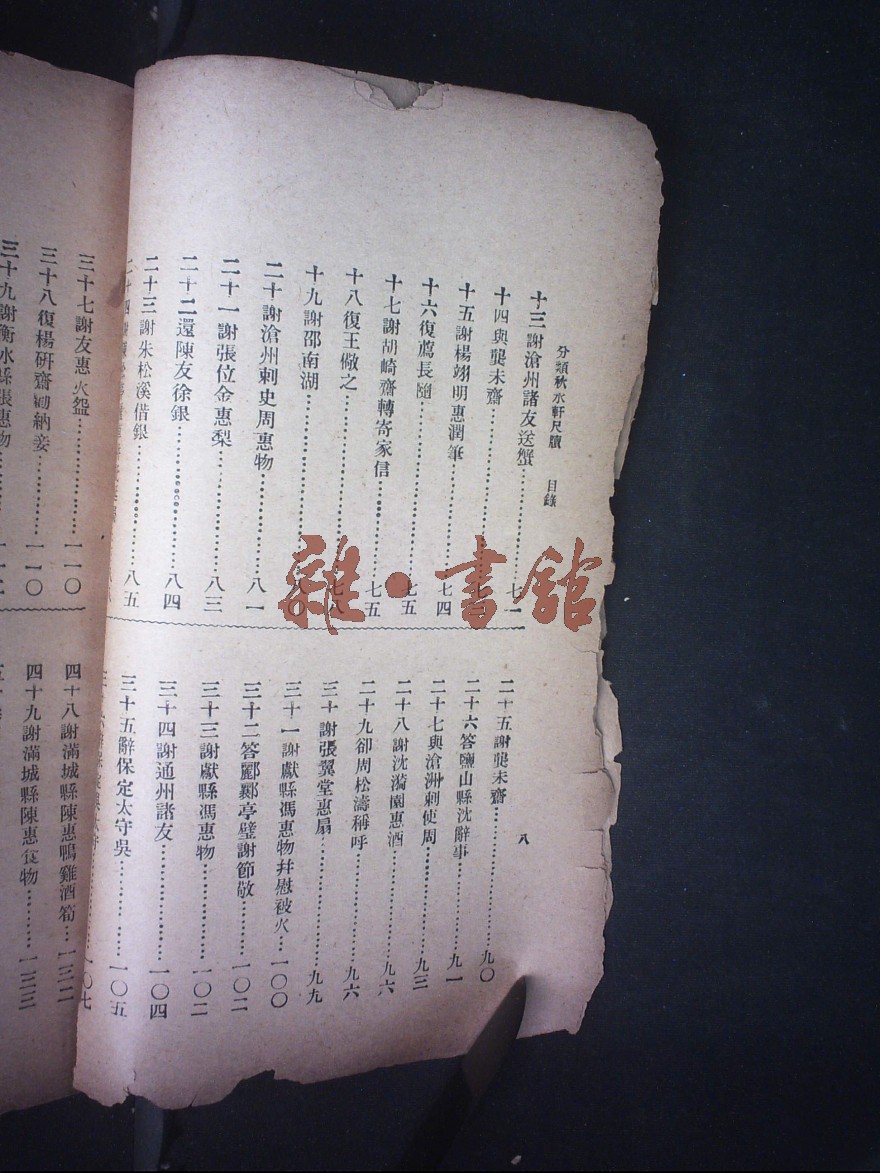 分類秋水軒尺牘 目錄
八
十三謝滄州諸友送蟹
十四與龔未齋
十五謝楊翊明惠潤筆………七四
十六復薦長隨………七五
十七謝胡崎齋轉寄家信………七五
十八復王儆之………七八
十九謝邵南湖………八〇
二十謝滄州刺史周惠物………八一
二十一謝張位金惠梨………八三
二十二還陳友徐銀………八四
二十三謝朱松溪借銀………八五
二十五謝龔未齋………九〇
二十六答鹽山縣沈辭事………九一
二十七與滄洲刺使周………九三
二十八謝沈漪園惠酒………九六
二十九卻周松濤稱呼………九六
三十謝張翼堂惠扇………九九
三十一謝獻縣馮惠物并慰被火………一〇〇
三十二答酈鄴亭璧謝節敬………一〇二
三十三謝獻縣馮惠物………一〇二
三十四謝通州諸友………一〇四
三十五辭保定太守吳………一〇五
一〇七
三十七謝友惠火盌………一一〇
三十八復楊研齋勸納妾………一一〇
三十九謝衡水縣張惠物
四十八謝滿城縣陳惠鴨雞酒筍………一三二
四十九謝滿城縣陳惠食物………一三三
雜·書館